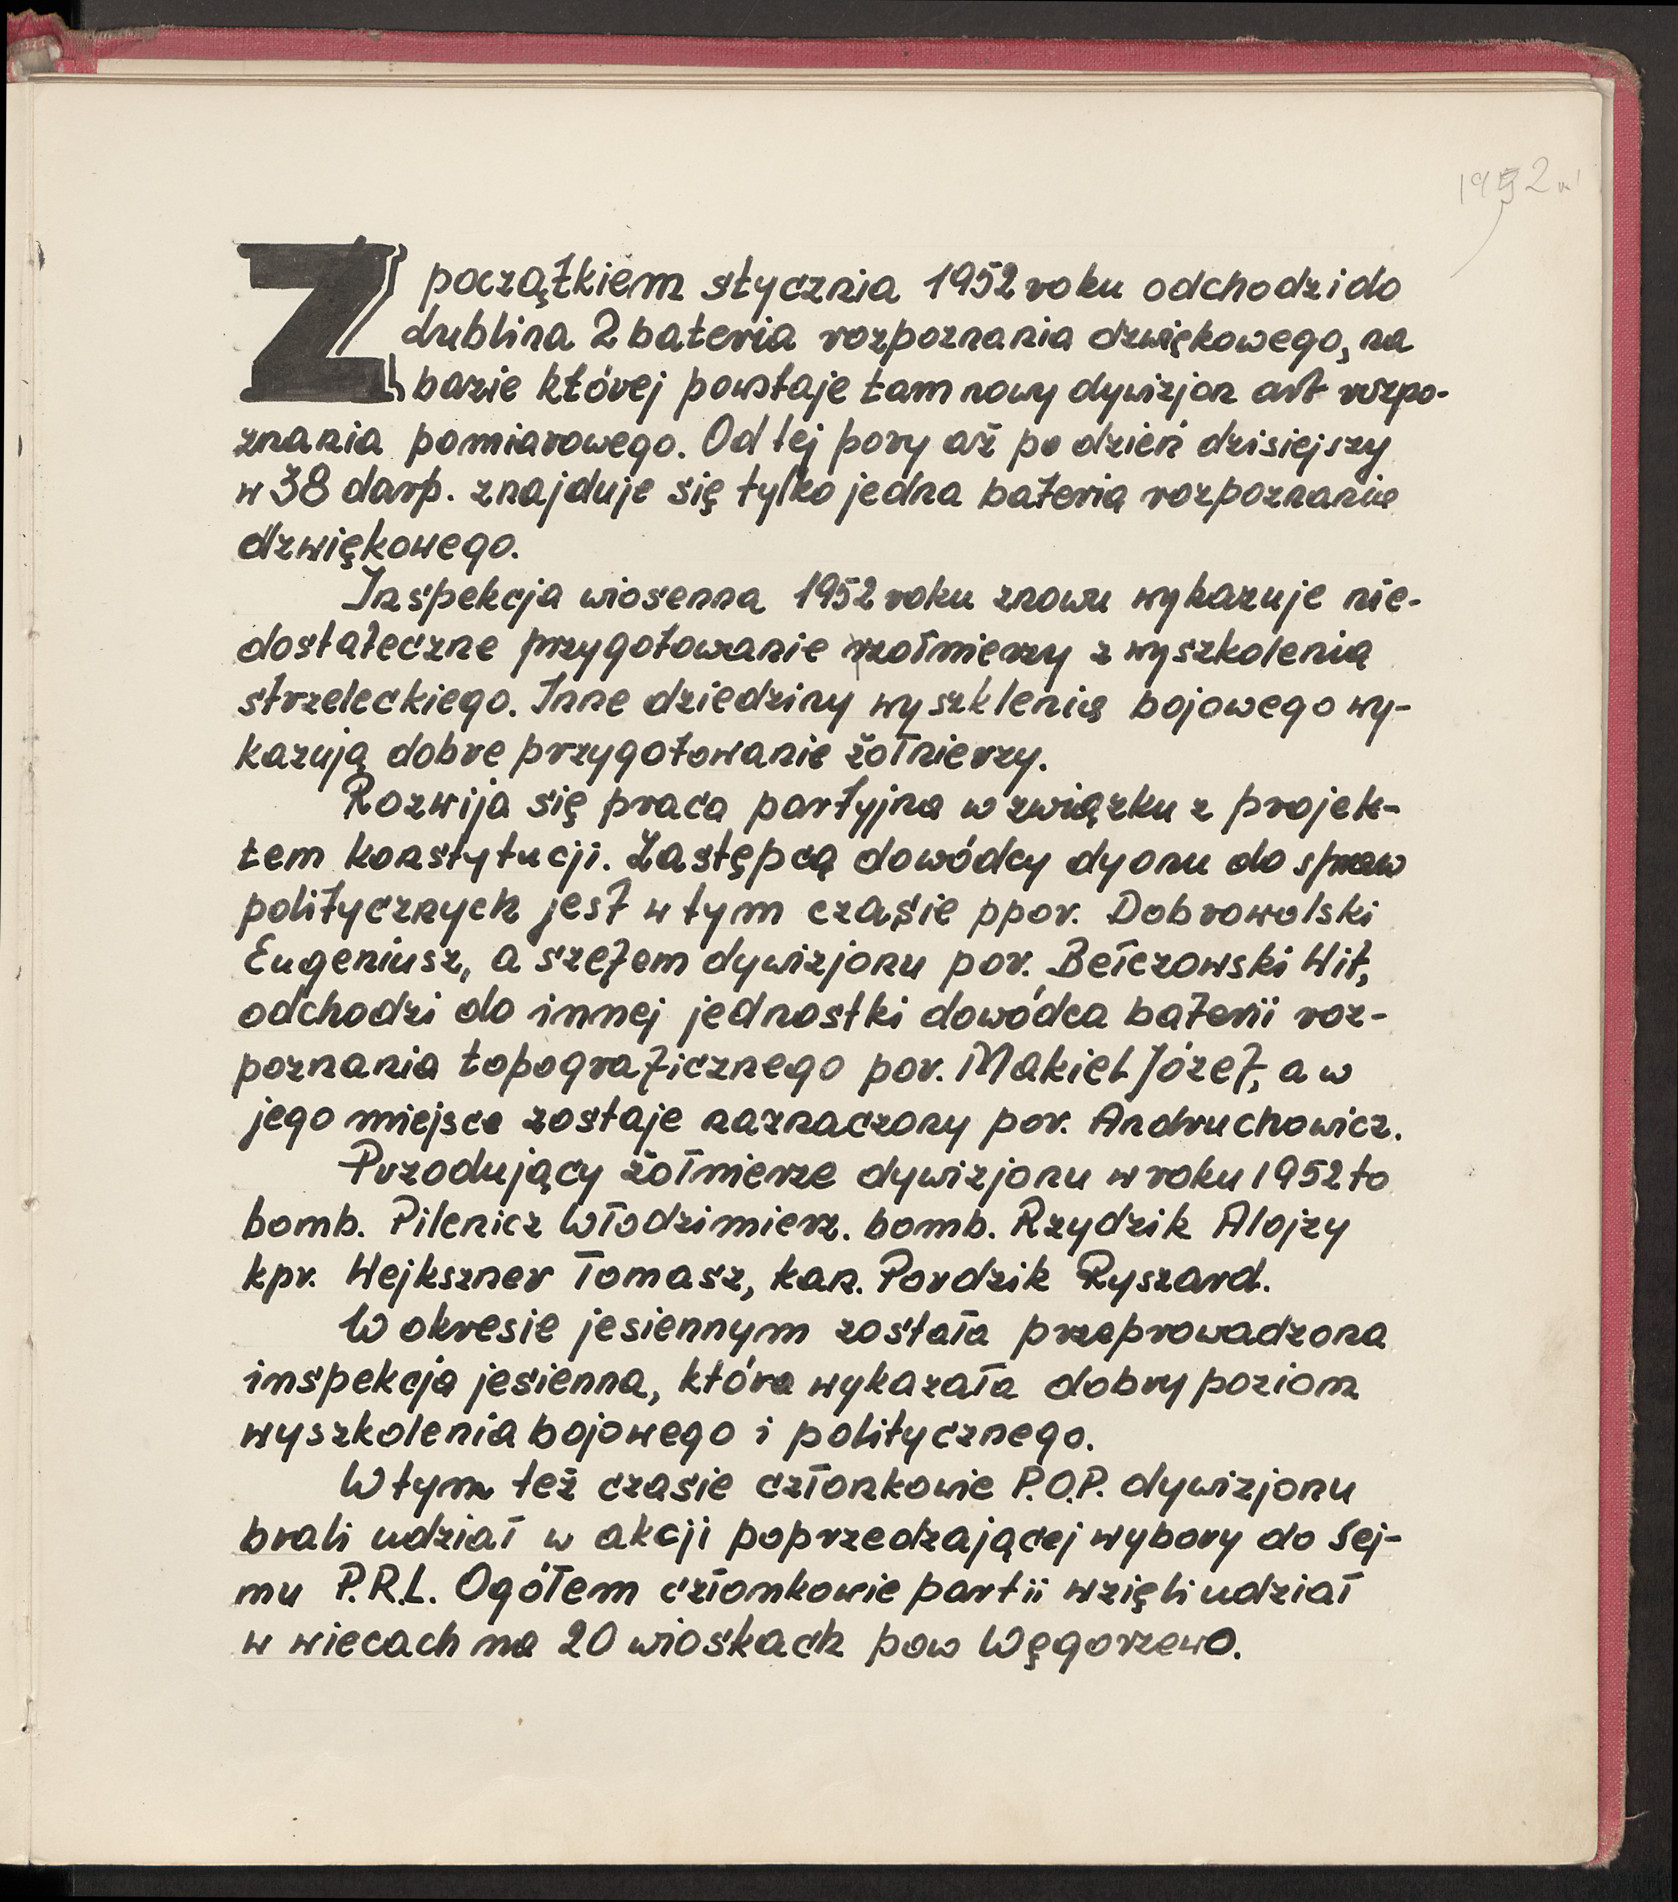 1952 r.
Z początkiem stycznia 1952 roku odchodzi do
Lublina 2 bateria rozpoznania dzwiękowego, na
bazie której powstaje tam nowy dywizjon art rozpo-
znania pomiarowego. Od tej pory aż po dzień dzisiejszy
w 38 darp. znajduje się tylko jedna bateria rozpoznania
dzwiękowego.
Inspekcja wiosenna 1952 roku znowu wykazuje nie-
dostateczne przygotowanie żołnierzy z wyszkolenia
strzeleckiego. Inne dziedziny wyszklenia bojowego wy-
kazują dobre przygotowanie żołnierzy.
Rozwija się praca partyjna w związku z projek-
tem konstytucji. Zastępcą dowódcy dyonu do spraw
politycznych jest w tym czasie ppor. Dobrowolski
Eugeniusz, a szefem dywizjonu por. Bełczowski Wit,
odchodzi do innej jednostki dowódca baterii roz-
poznania topograficznego por. Makieł Józef, a w
jego miejsce zostaje naznaczony por. Andruchowicz.
Przodujący żołnierze dywizjonu w roku 1952 to
bomb. Pilenicz Włodzimierz. bomb. Rzydzik Alojzy
kpr. Wejkszner Tomasz, kan. Pordzik Ryszard.
W okresie jesiennym została przeprowadzona
inspekcja jesienna, która wykazała dobry poziom
wyszkolenia bojowego i politycznego.
W tym też czasie członkowie P.O.P. dywizjonu
brali udział w akcji poprzedzającej wybory do Sej-
mu P.R.L. Ogółem członkowie partii wzięli udział
w wiecach na 20 wioskach pow Węgorzewo.